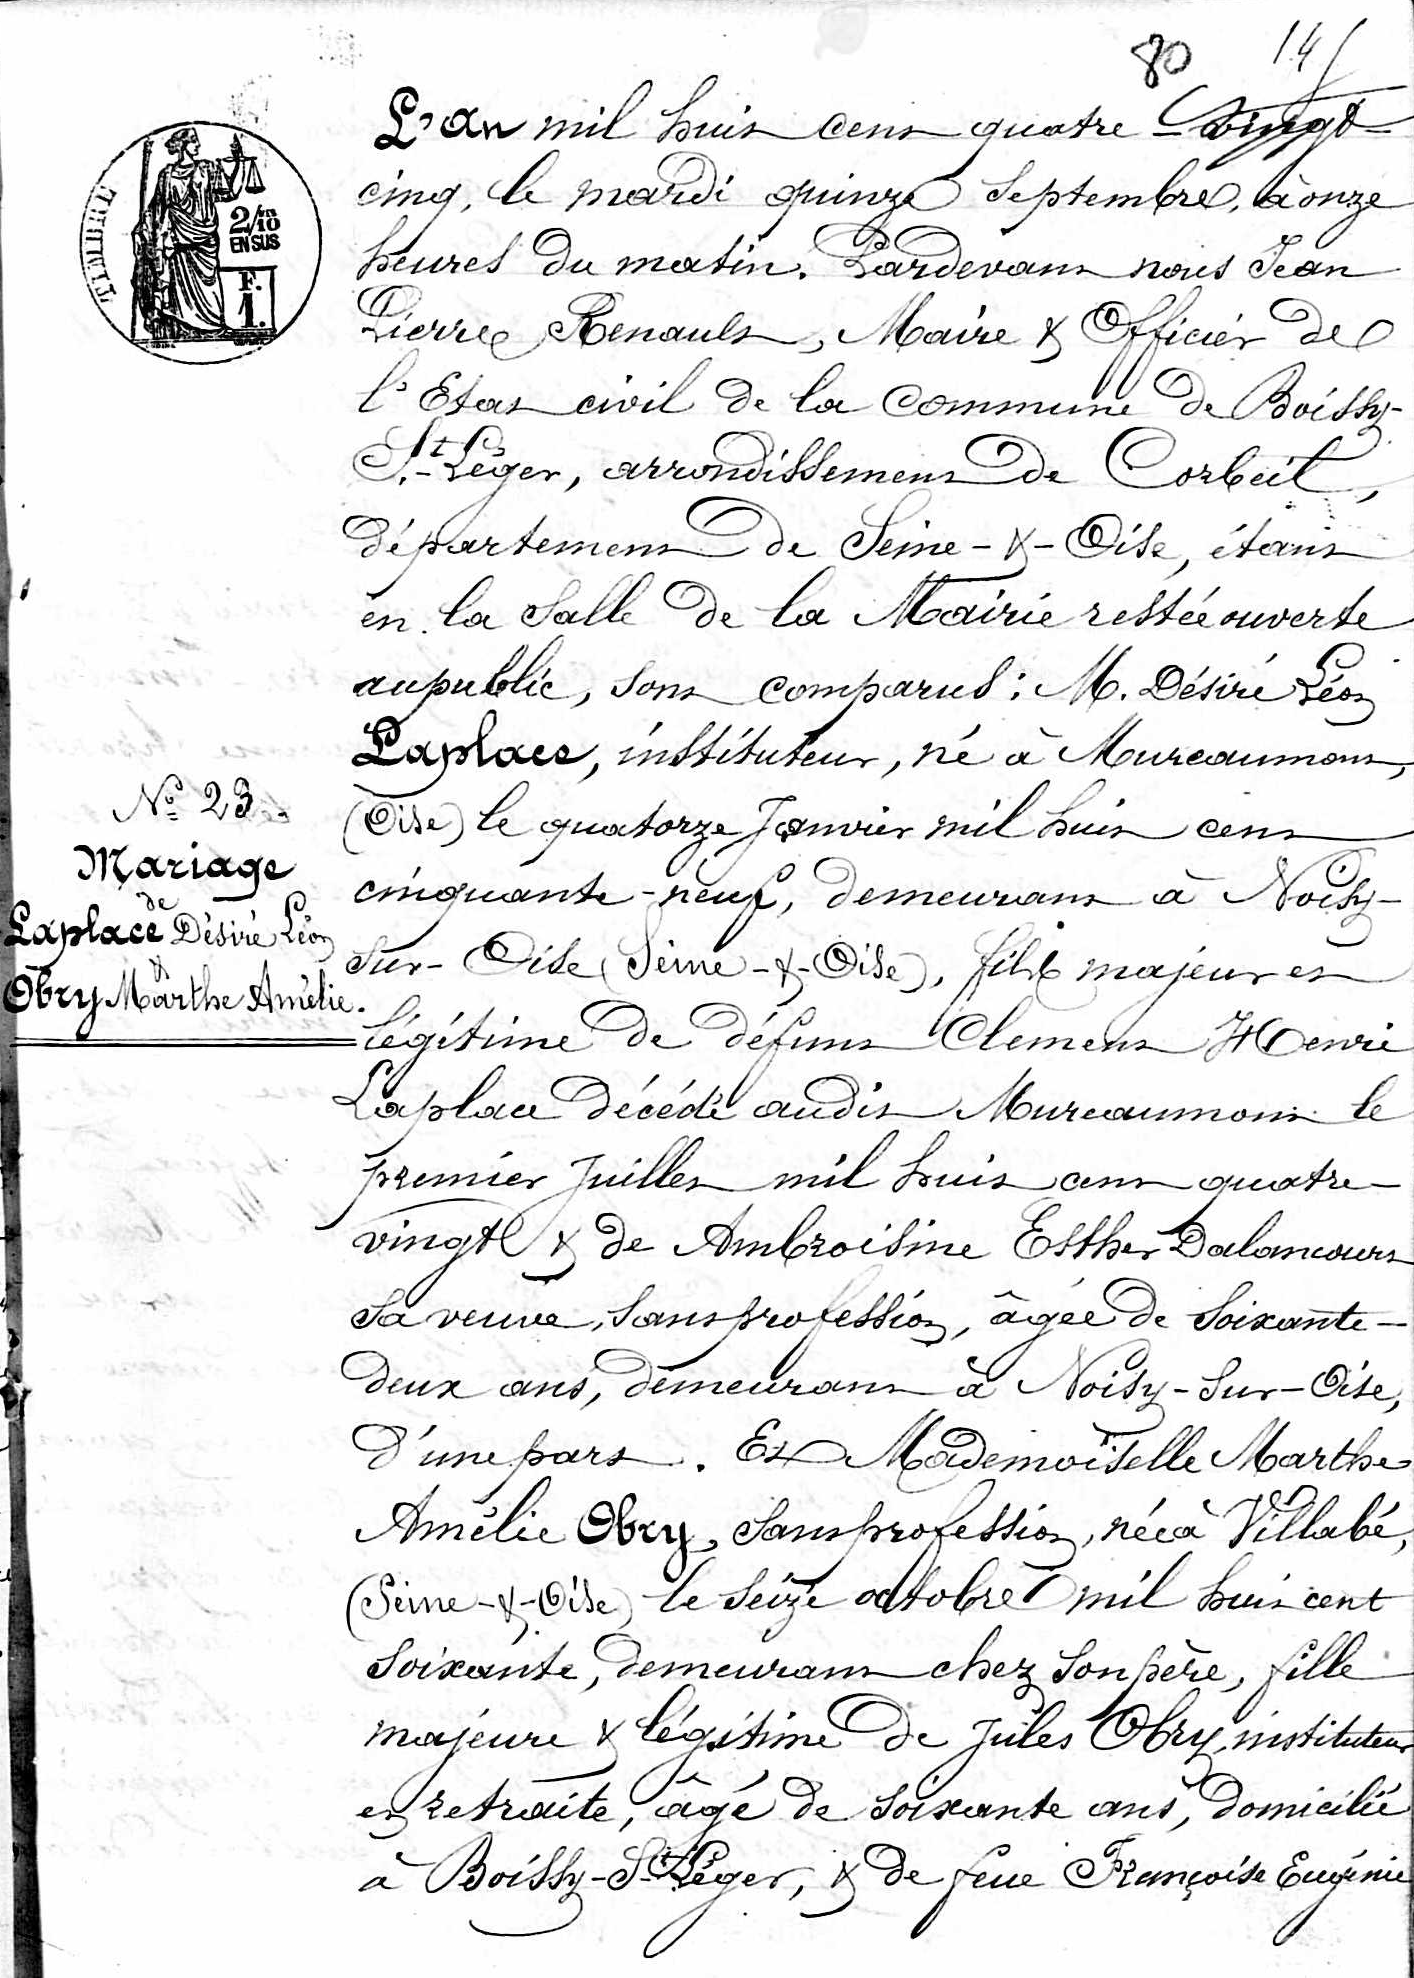 80 145
TIMBRE
2/10 EN SUS
F.
1.
L'an mil huit cent quatre-vingt-
cinq, le mardi quinze Septembre, à onze
heures du matin. Pardevant nous Jean
Pierre Renault, Maire & Officier de
l'Etat civil de la Commune de Boissy-
St-Léger, arrondissement de Corbeil,
département de Seine-&-Oise, étant
en la salle de la Mairie restée ouverte
au public, sont comparus : M. Désiré Léon
Laplace, instituteur, né à Mureaumont,
(Oise) le quatorze Janvier mil huit cent
cinquante-neuf, demeurant à Noisy-
sur-Oise (Seine-&-Oise), fils majeur et
légitime de défunt Clement Henri
Laplace décédé audit Mureaumont le
premier Juillet mil huit cent quatre-
vingt & de Ambroisine Esther Dalancourt
sa veuve, sans profession, âgée de soixante-
deux ans, demeurant à Noisy-sur-Oise,
d'une part. Et Mademoiselle Marthe
Amélie Obry, sans profession, née à Villabé,
(Seine-&-Oise) le seize octobre mil huit cent
soixante, demeurant chez son père, fille
majeure & légitime de Jules Obry, instituteur
en retraite, âgé de soixante ans, domicilié
à Boissy-St-Léger, & de feue Françoise Eugénie
No 23
Mariage
de
Laplace Désiré Léon
&
Obry Marthe Amélie.